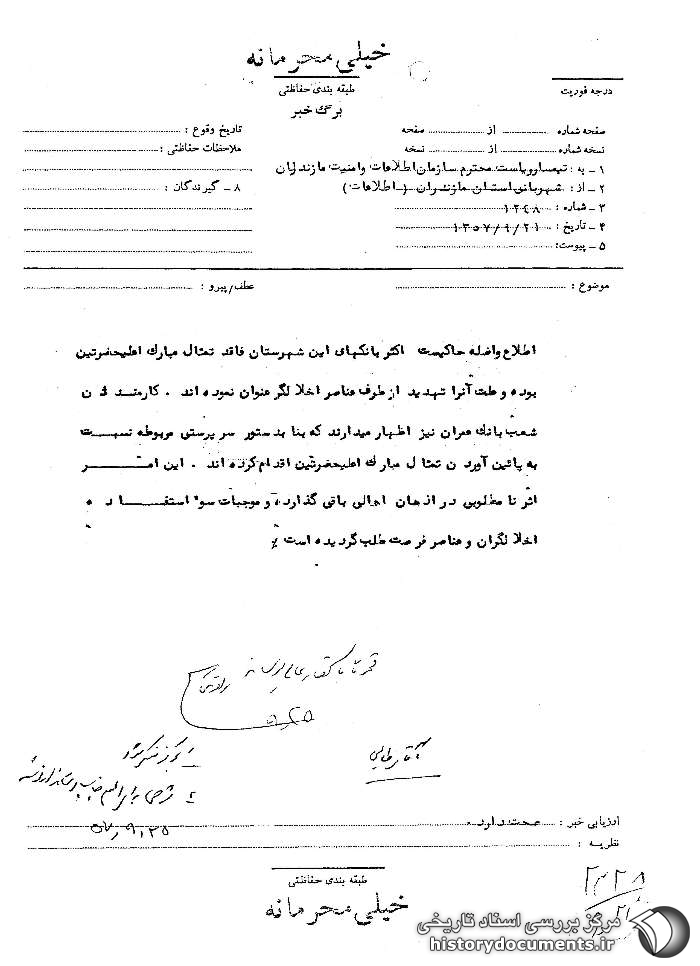 خیلی محرمانه
طبقه بندی حفاظتی
برگ خبر
درجه فوریت
صفحه شماره از صفحه
نسخه شماره از نسخه
۱ ـ به : تیمسار ریاست محترم سازمان اطلاعات و امنیت مازندران
۲ ـ از : شهربانی استان مازندران (اطلاعات)
۳ ـ شماره : ۱۲۴۸
۴ ـ تاریخ : ۱۳۵۷/۹/۲۱
۵ ـ پیوست:
تاریخ وقوع :
ملاحظات حفاظتی :
۸ ـ گیرندگان :
موضوع :
عطف/پیرو :
اطلاع واصله حاکیست اکثر بانکهای این شهرستان فاقد تمثال مبارک اعلیحضرتین
بوده و علت آنرا تهدید از طرف عناصر اخلالگر عنوان نموده اند . کارمندان
شعب بانک عمران نیز اظهار میدارند که بنا بدستور سرپرستی مربوطه نسبت
به پائین آوردن تمثال مبارک اعلیحضرتین اقدام کرده اند . این امر
اثر نامطلوبی در اذهان اهالی باقی گذارده و موجبات سوء استفاده
اخلالگران و عناصر فرصت طلب گردیده است ٪
ارزیابی خبر : صحت دارد
۵۷,۹,۲۵
نظریه :
طبقه بندی حفاظتی
خیلی محرمانه
مرکز بررسی اسناد تاریخی
historydocuments.ir